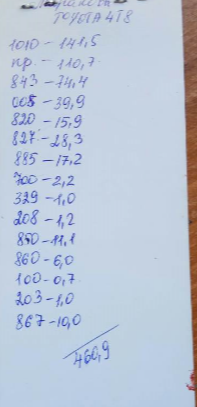 TOYOTA 4T8
1010 - 141,5
пр. - 110,7
843 - 74,4
008 - 39,9
820 - 15,9
827 - 28,3
885 - 17,2
700 - 2,2
329 - 1,0
208 - 1,2
850 - 11,1
860 - 6,0
100 - 0,7
203 - 1,0
867 - 10,0
460,9